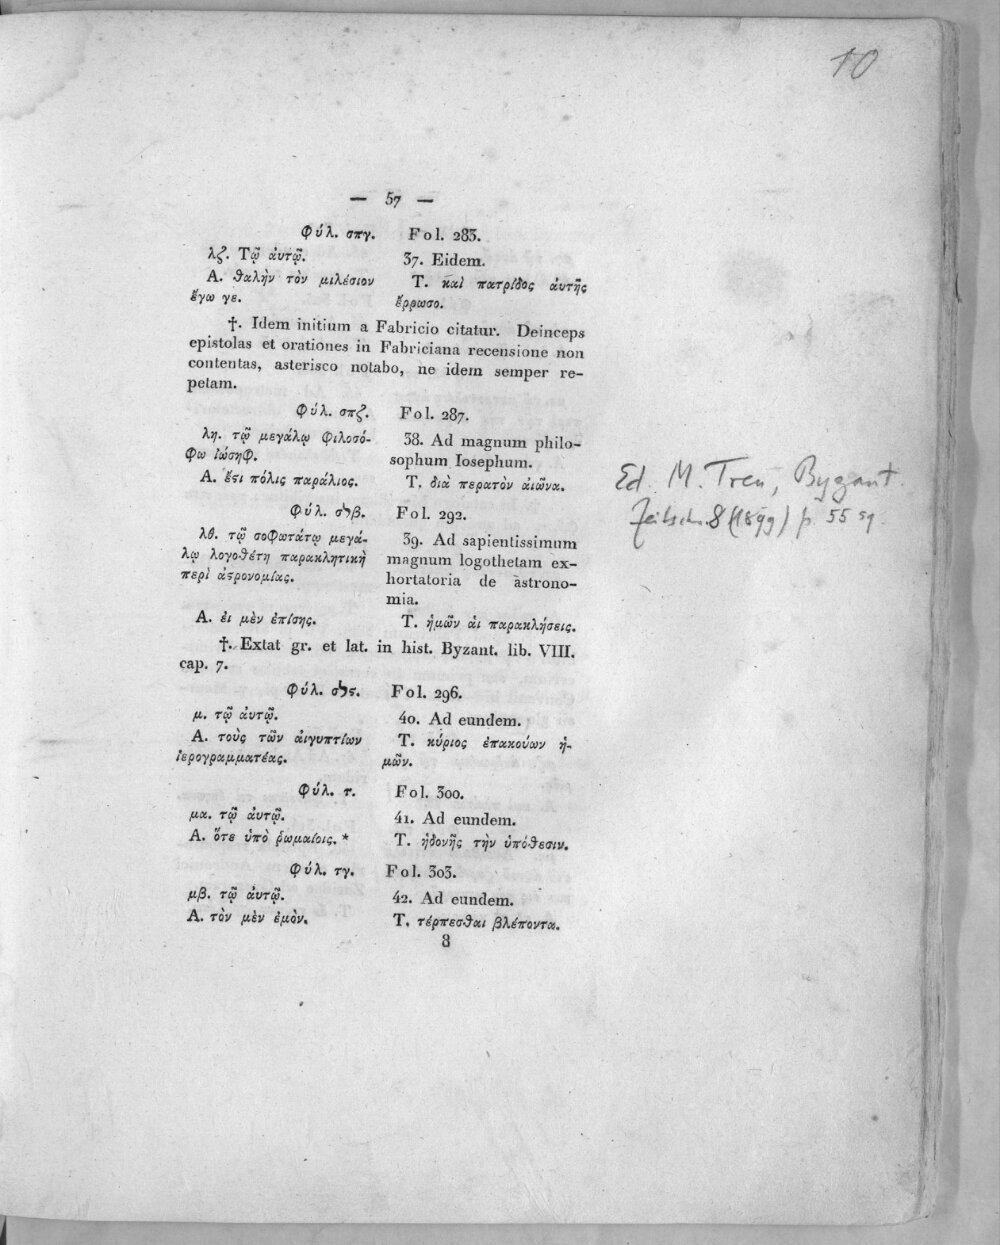 10
— 57 —
Φύλ. σπγ. Fol. 283.
λζ. Τῷ ἀυτῷ. 37. Eidem.
Α. θαλὴν τὸν μιλέσιον Τ. καὶ πατρίδος ἀυτῆς
ἔγω γε. ἔρρωσο.
†. Idem initium a Fabricio citatur. Deinceps
epistolas et orationes in Fabriciana recensione non
contentas, asterisco notabo, ne idem semper re-
petam.
Φύλ. σπζ. Fol. 287.
λη. τῷ μεγάλῳ φιλοσό- 38. Ad magnum philo-
φω ἰώσηφ. sophum Iosephum.
Α. ἔϛι πόλις παράλιος. Τ. διὰ περατὸν ἀιῶνα.
Φύλ. σϟβ. Fol. 292.
λθ. τῷ σοφωτάτῳ μεγά- 39. Ad sapientissimum
λῳ λογοθέτη παρακλητικὴ magnum logothetam ex-
περὶ ἀϛρονομίας. hortatoria de astrono-
mia.
Α. ἐι μὲν ἐπίσης. Τ. ἡμῶν ἁι παρακλήσεις.
†. Extat gr. et lat. in hist. Byzant. lib. VIII.
cap. 7.
Φύλ. σϟϛ. Fol. 296.
μ. τῷ ἀυτῷ. 40. Ad eundem.
Α. τοὺς τῶν ἀιγυπτίων Τ. κύριος ἐπακούων ἡ-
ἱερογραμματέας. μῶν.
Φύλ. τ. Fol. 300.
μα. τῷ ἀυτῷ. 41. Ad eundem.
Α. ὅτε ὑπὸ ῥωμαίοις. * Τ. ἡδονῆς τὴν ὑπόθεσιν.
Φύλ. τγ. Fol. 303.
μβ. τῷ ἀυτῷ. 42. Ad eundem.
Α. τὸν μὲν ἐμὸν. Τ. τέρπεσθαι βλέποντα.
8
Ed. M. Treu, Byzant.
Zeitschr. 8 (1899) p. 55 sq.